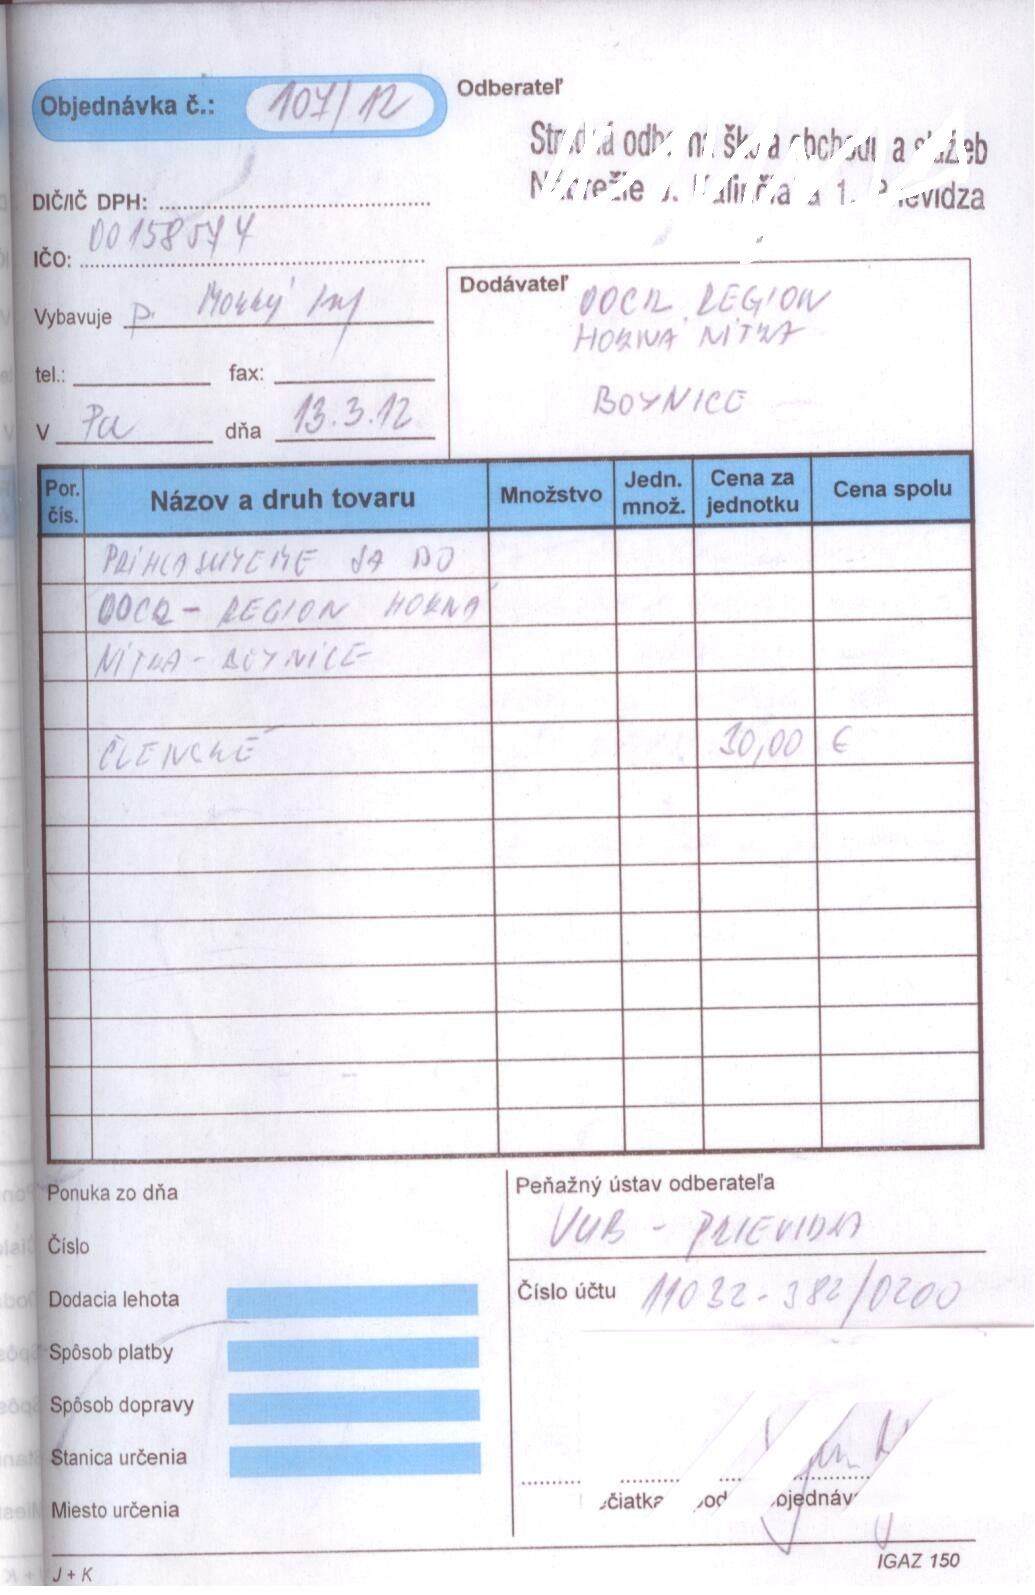 Objednávka č.: 107/12
Odberateľ
Stredná odborná škola obchodu a služeb
Nábrežie J. Kalinčiaka 1, Prievidza
DIČ/IČ DPH:
IČO: 00158577
Vybavuje p. Mokrý Inf
tel.: fax:
V Pd dňa 13.3.12
Dodávateľ OOCR REGION
HORNÁ NITRA
BOJNICE
Por. čís. Názov a druh tovaru Množstvo Jedn. množ. Cena za jednotku Cena spolu
PRIHLASUJEME SA DO
OOCR - REGION HORNÁ
NITRA - BOJNICE
ČLENSKÉ 30,00 €
Ponuka zo dňa
Číslo
Dodacia lehota
Spôsob platby
Spôsob dopravy
Stanica určenia
Miesto určenia
Peňažný ústav odberateľa
VUB - PRIEVIDZA
Číslo účtu 11032-382/0200
J + K
IGAZ 150